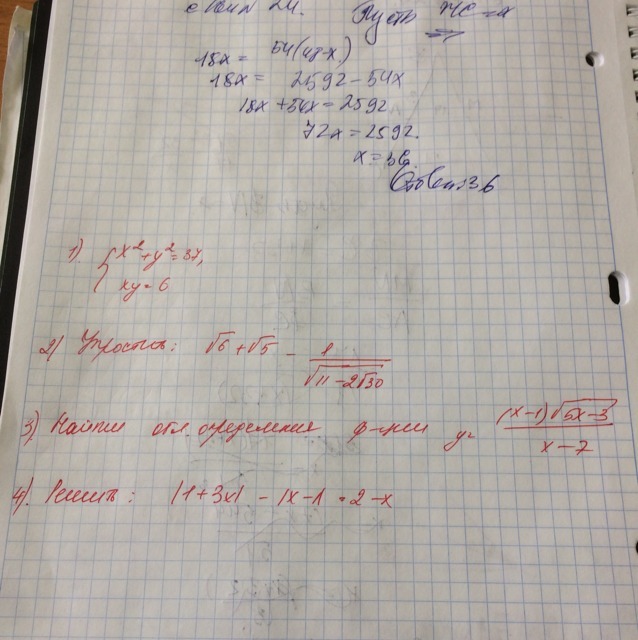 Пусть НС = x
18x = 54(48-x)
18x = 2592 - 54x
18x + 54x = 2592
72x = 2592.
x = 36.
Ответ: 36
1) { x² + y² = 37,
xy = 6
2) Упростить: √6 + √5 - 1/√(11 - 2√30)
3) Найти обл. определения ф-ции y = (x-1)√(5x-3) / (x-7)
4). Решить: |1+3x| - |x-1| = 2-x